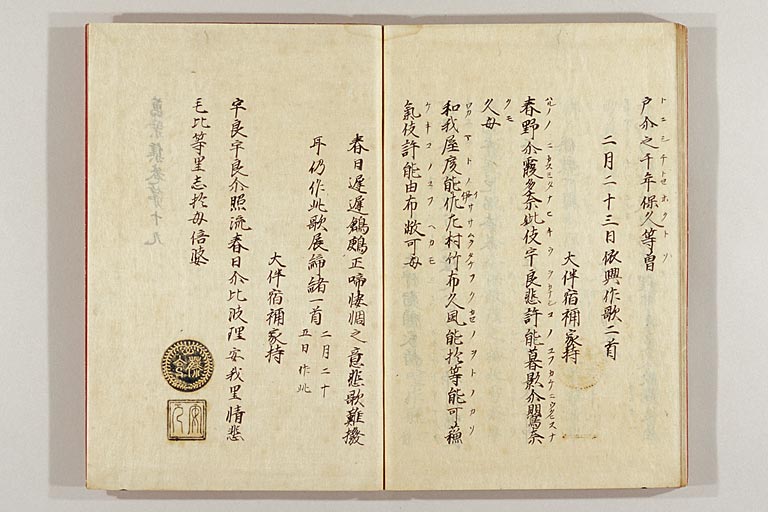 戸尒之千年保久等曽
二月二十三日依興作歌二首
大伴宿祢家持
春野尒霞多奈毗伎宇良悲許能暮影尒鸎奈
久母
和我屋度能佐左村竹布久風能於等能可蘓
氣伎許能由布敝可母
春日遅遅鶬鶊正啼悽惆之意悲歌難撥
耳仍作此歌展締緒一首 二月二十
五日作此
大伴宿祢家持
宇良宇良尒照流春日尒比波理安我里情悲
毛比等里志於母倍婆
萬葉集巻第十九